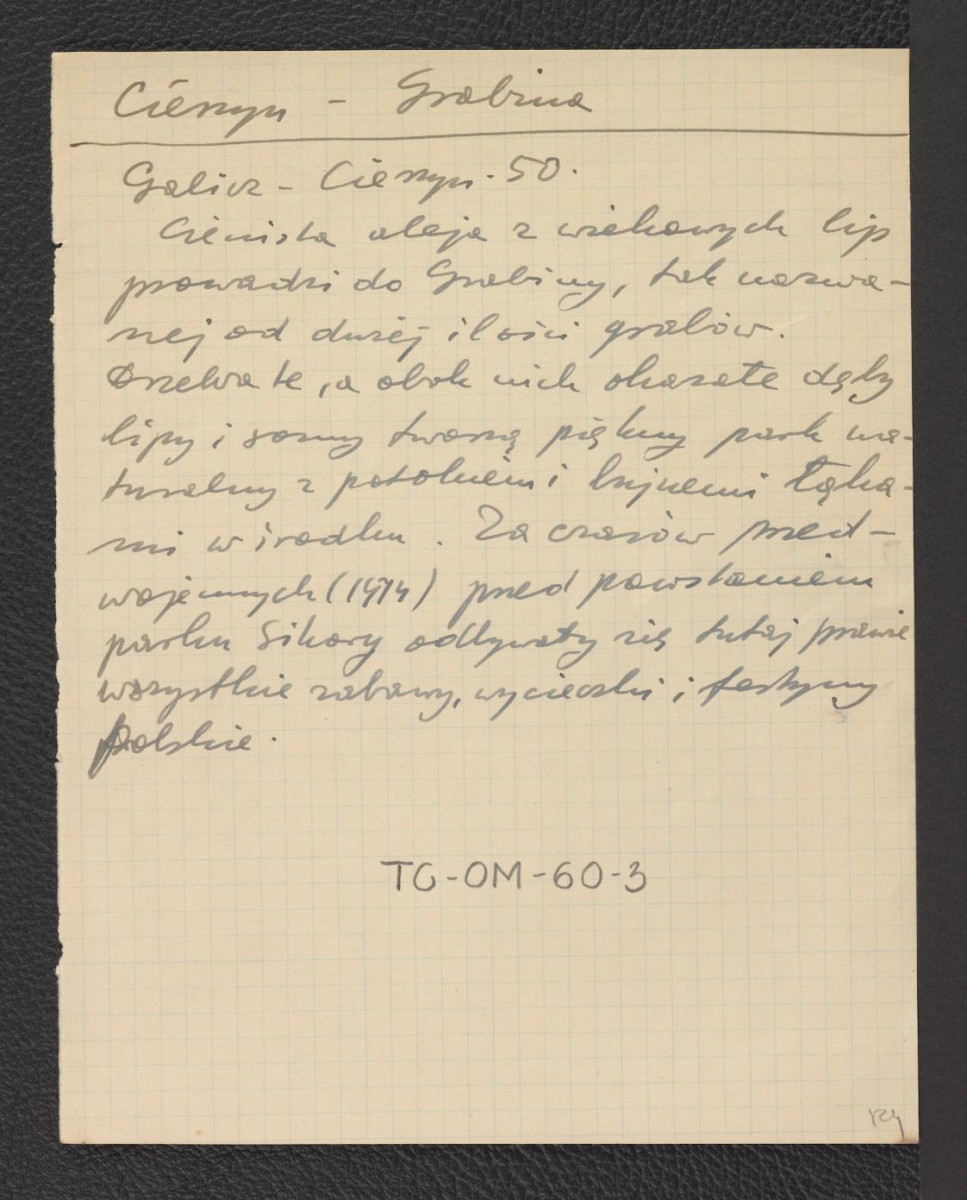 Cieszyn - Grabina
Galicz - Cieszyn - 50.
Cienista aleja z wiekowych lip
prowadzi do Grabiny, tak nazwa-
nej od dużej ilości grabów.
Drzewa te, a obok nich okazałe dęby
lipy i sosny tworzą piękny park na-
turalny z potokiem i bujnemi łąka-
mi w środku. Za czasów przed-
wojennych (1914) przed powstaniem
parku Sikory odbywały się tutaj prawie
wszystkie zabawy, wycieczki i festyny
polskie.
TC-OM-60-3